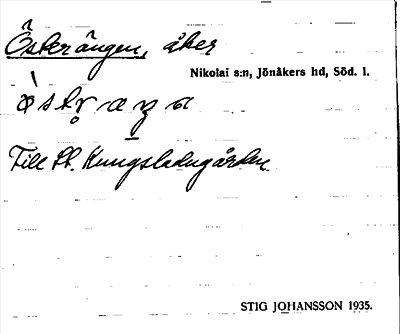 Österängen, åker
Nikolai s:n, Jönåkers hd, Söd. l.
Till St. Kungsladugården.
STIG JOHANSSON 1935.